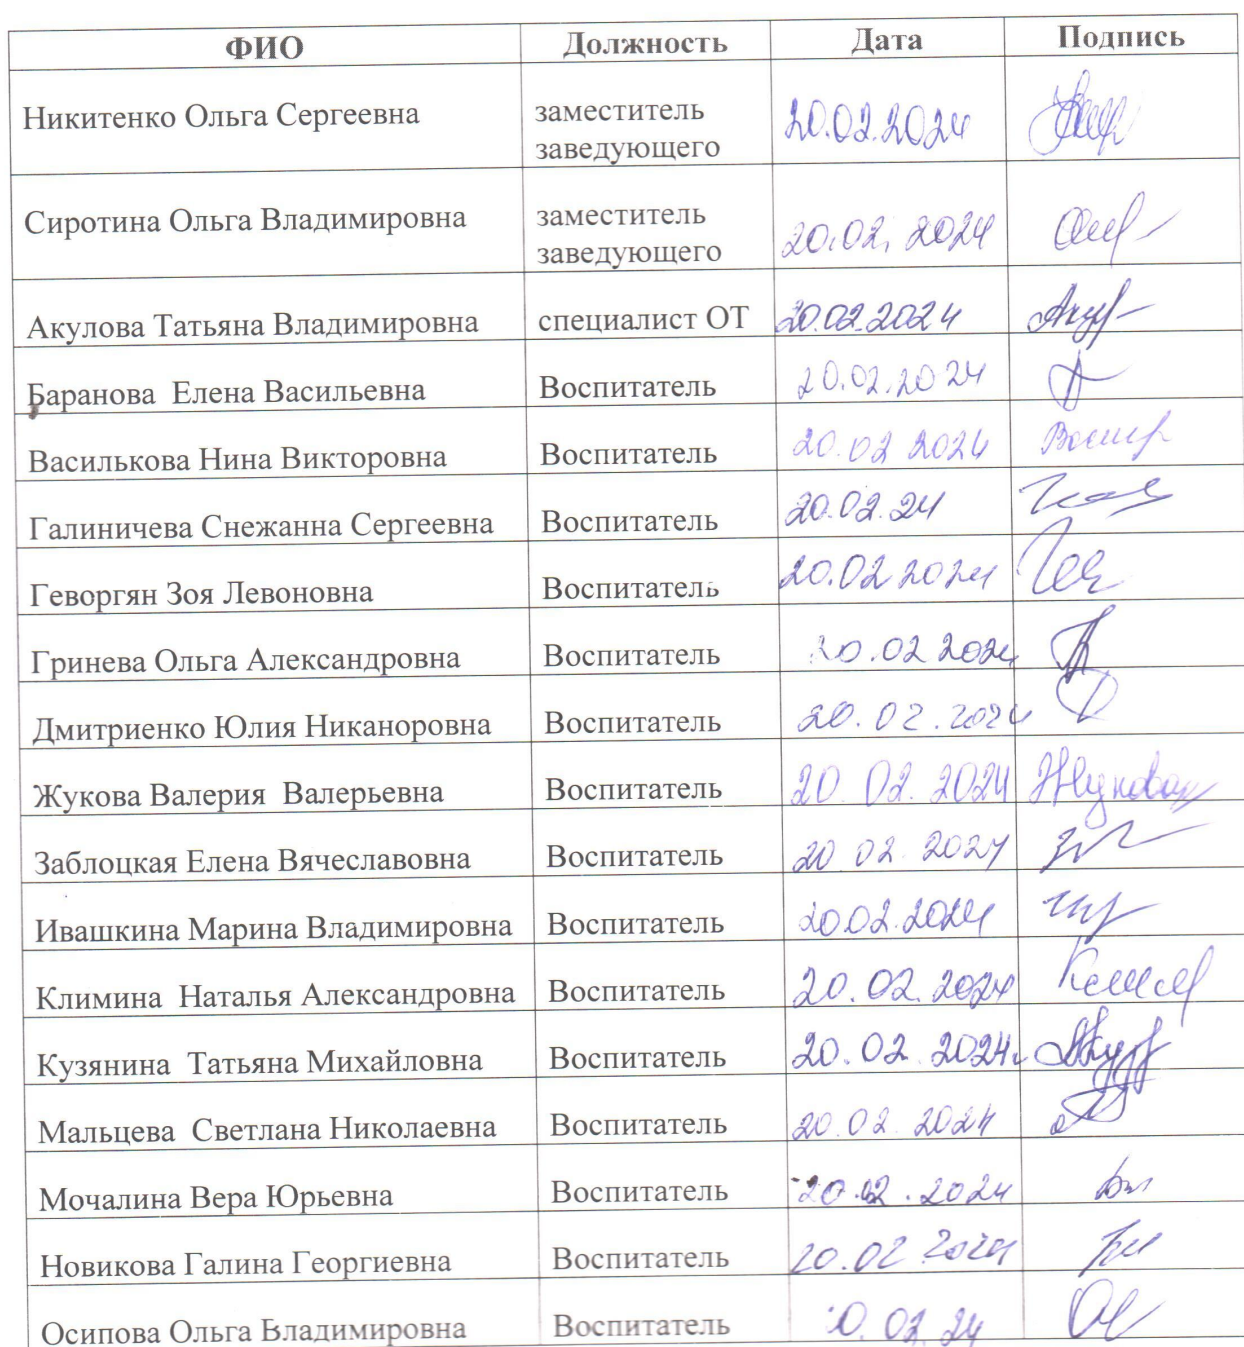 ФИО Должность Дата Подпись
Никитенко Ольга Сергеевна заместитель заведующего 20.02.2024
Сиротина Ольга Владимировна заместитель заведующего 20.02.2024
Акулова Татьяна Владимировна специалист ОТ 20.02.2024
Баранова Елена Васильевна Воспитатель 20.02.2024
Василькова Нина Викторовна Воспитатель 20.02 2024
Галиничева Снежанна Сергеевна Воспитатель 20.02.24
Геворгян Зоя Левоновна Воспитатель 20.02 2024
Гринева Ольга Александровна Воспитатель 20.02 2024
Дмитриенко Юлия Никаноровна Воспитатель 20.02.2024
Жукова Валерия Валерьевна Воспитатель 20.02.2024 Жукова
Заблоцкая Елена Вячеславовна Воспитатель 20 02.2024
Ивашкина Марина Владимировна Воспитатель 20.02.2024
Климина Наталья Александровна Воспитатель 20.02.2024
Кузянина Татьяна Михайловна Воспитатель 20.02.2024.
Мальцева Светлана Николаевна Воспитатель 20.02.2024
Мочалина Вера Юрьевна Воспитатель 20.02.2024
Новикова Галина Георгиевна Воспитатель 20.02 2024
Осипова Ольга Владимировна Воспитатель 0.02.24